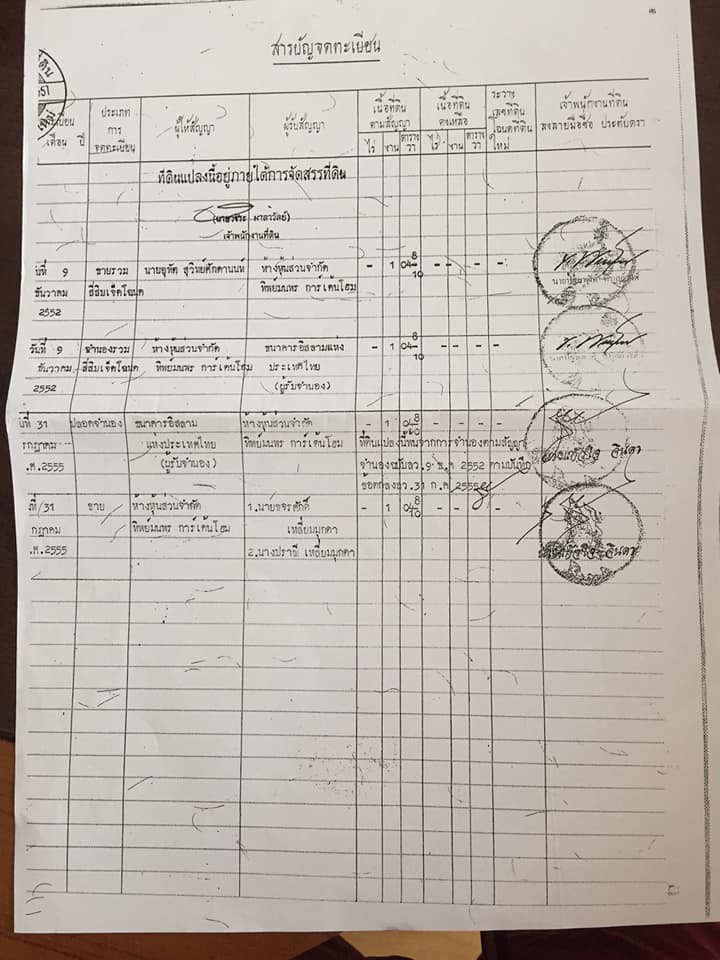 สารบัญจดทะเบียน
ประเภท
การ
จดทะเบียน
เดือน ปี
ผู้ให้สัญญา
ผู้รับสัญญา
เนื้อที่ดิน
ตามสัญญา
ไร่ งาน ตาราง
วา
เนื้อที่ดิน
คงเหลือ
ไร่ งาน ตาราง
วา
ระวาง
เลขที่ดิน
โฉนดที่ดิน
ใหม่
เจ้าพนักงานที่ดิน
ลงลายมือชื่อ ประทับตรา
ที่ดินแปลงนี้อยู่ภายใต้การจัดสรรที่ดิน
เจ้าพนักงานที่ดิน
วันที่ 9 ขายรวม นายอุทัด สุวิทย์ศักดานนท์ ห้างหุ้นส่วนจำกัด - 1 04 8/10 - - - -
ธันวาคม สี่สิบเจ็ดโฉนด ทิพย์มนพร การ์เด้นโฮม
2552
วันที่ 9 จำนองรวม ห้างหุ้นส่วนจำกัด ธนาคารอิสลามแห่ง - 1 04 8/10 - - - -
ธันวาคม สี่สิบเจ็ดโฉนด ทิพย์มนพร การ์เด้นโฮม ประเทศไทย
2552 (ผู้รับจำนอง)
นที่ 31 ปลอดจำนอง ธนาคารอิสลาม ห้างหุ้นส่วนจำกัด - 1 04 8/10 - - - -
รกฎาคม แห่งประเทศไทย ทิพย์มนพร การ์เด้นโฮม ที่ดินแปลงนี้พ้นจากการจำนองตามสัญญา
.ศ.2555 (ผู้รับจำนอง) จำนองฉบับลว.9 ธ.ค 2552 ตามบันทึก
ข้อตกลงลว.31 ก.ค 2555
ที่ 31 ขาย ห้างหุ้นส่วนจำกัด 1.นายขจรศักดิ์ - 1 04 8/10 - - - -
กรฎาคม ทิพย์มนพร การ์เด้นโฮม เหลี่ยมมุกดา
.ศ.2555 2.นางปราณี เหลี่ยมมุกดา